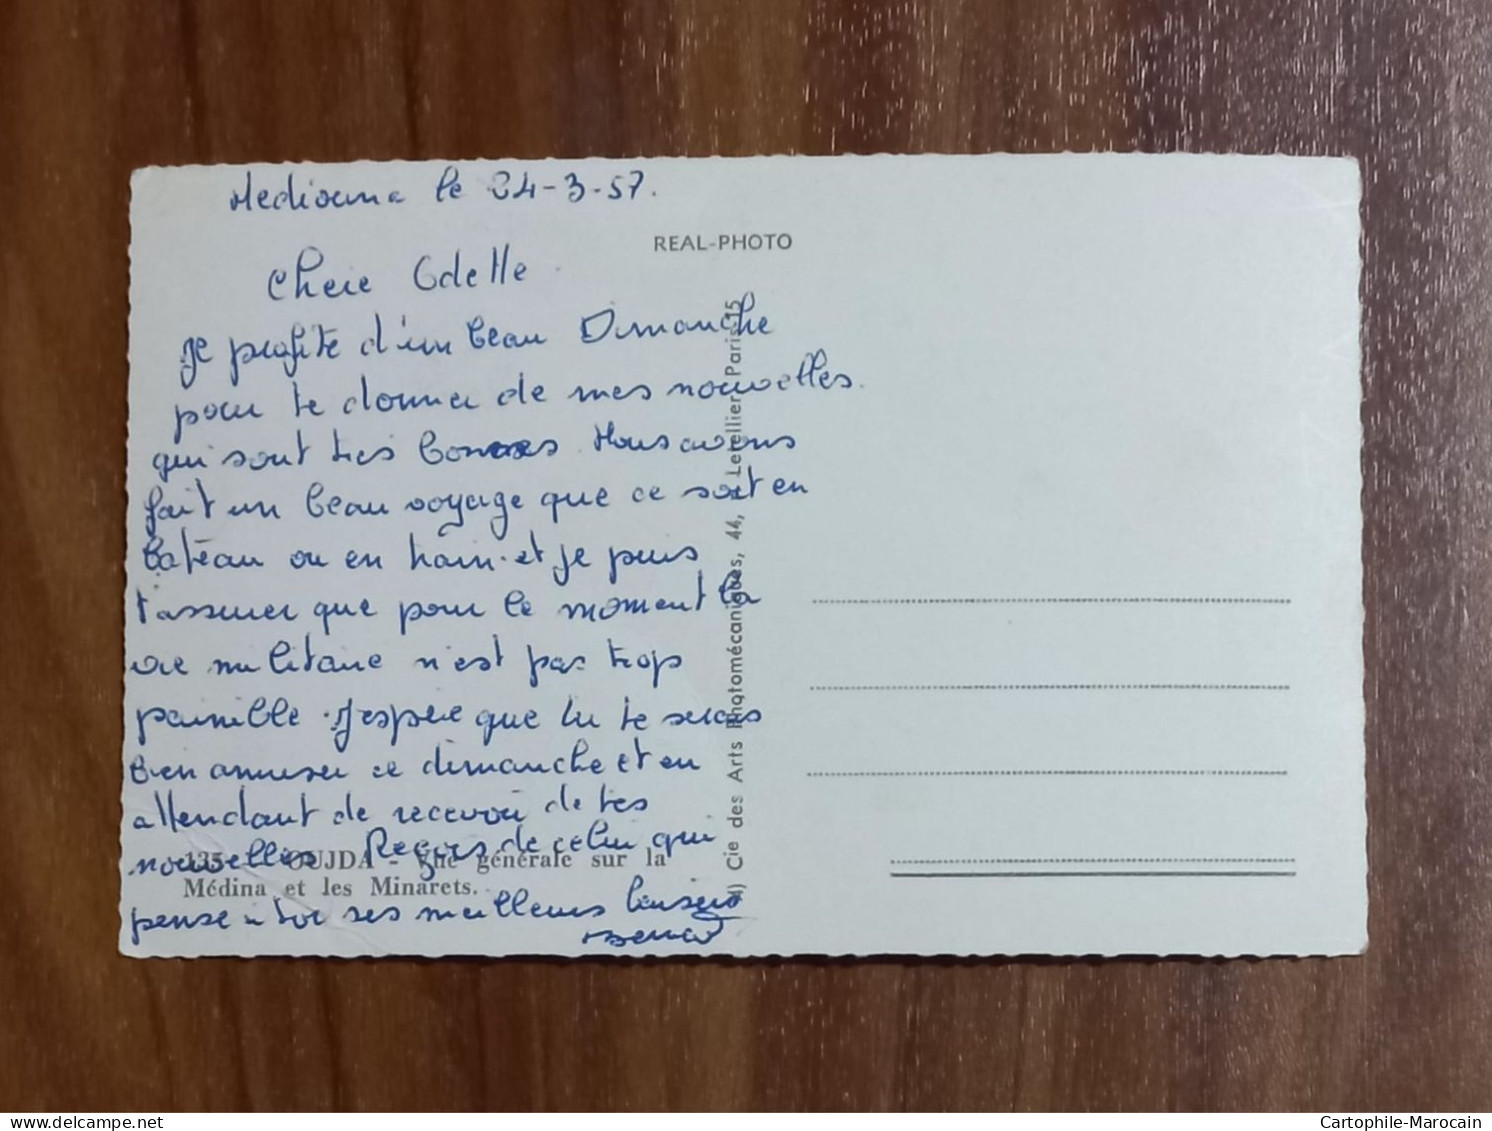 Mediouna le 24-3-57.
REAL-PHOTO
Chere Odette
Je profite d'un beau Dimanche
pour te donner de mes nouvelles.
qui sont tres bonnes. Nous avons
fait un beau voyage que ce soit en
bateau ou en train. et je puis
t'assurer que pour le moment la
vie militaire n'est pas trop
painible. J'espere que tu te seras
bien amuser ce dimanche et en
attendant de recevoir de tes
nouvelles Reçois de celui qui
pense a toi ses meilleurs baisers
135 - OUJDA - Vue générale sur la
Médina et les Minarets.
Cie des Arts Photomécaniques, 44, r. Letellier, Paris-15
www.delcampe.net
Cartophile-Marocain